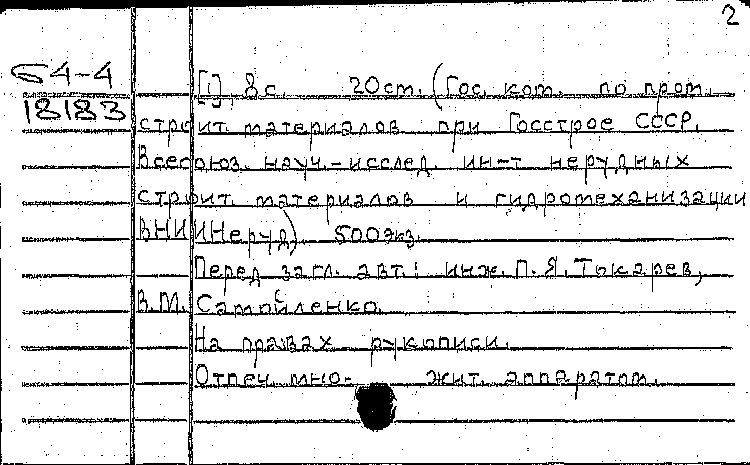 2
64-4
18183
[1], 8с. 20 ст. (Гос. ком. по пром.
строит. материалов при Госстрое СССР.
Всесоюз. науч.-исслед. ин-т нерудных
строит. материалов и гидромеханизации
ВНИИНеруд). 500 экз.
Перед загл. авт.: инж. П. Я. Токарев,
В.М. Самойленко.
На правах рукописи.
Отпеч. мно- жит. аппаратом.